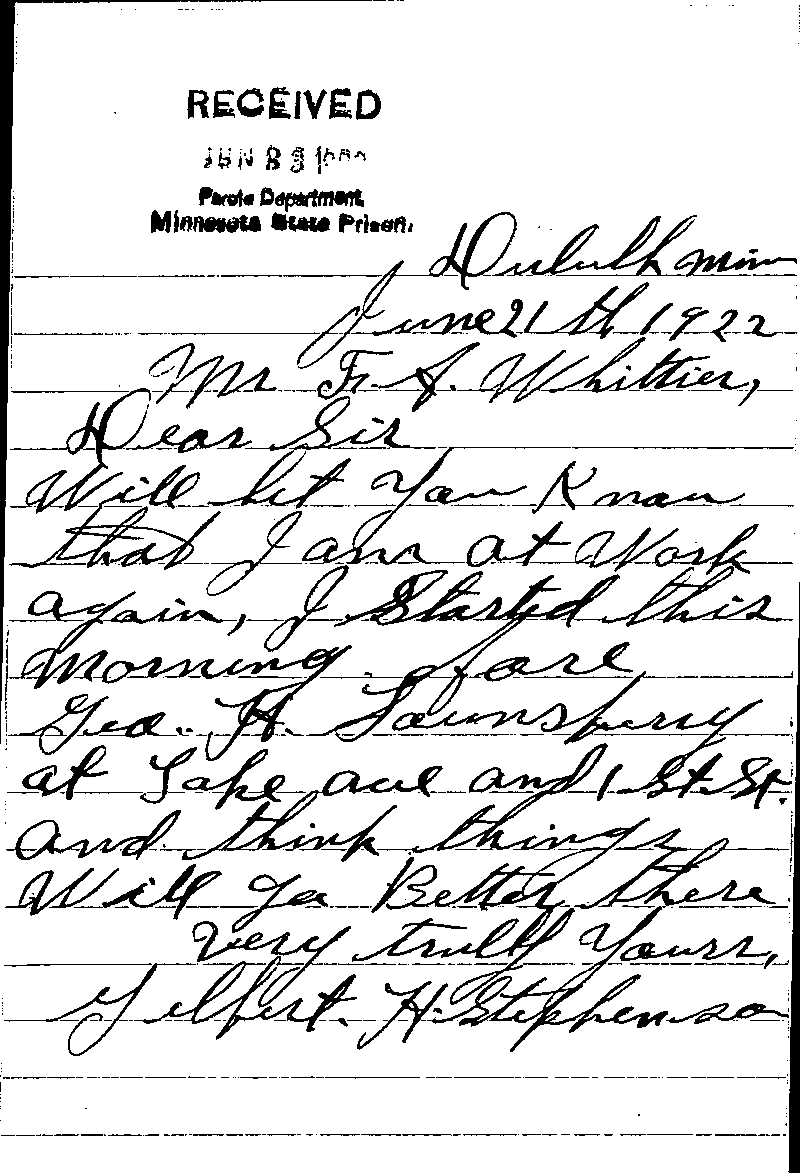 RECEIVED
JUN 23
Parole Department,
Minnesota State Prison.
Duluth Minn
June 21 th 1922
Mr F. A. Whittier,
Dear Sir
Will let You Know
that I am at Work
again, I Started this
Morning. for
Geo. H. Lounsberry
at Lake ave and 1 St. St.
and think things
Will go Better there
very trully Yours,
Gilbert. H. Stephenson